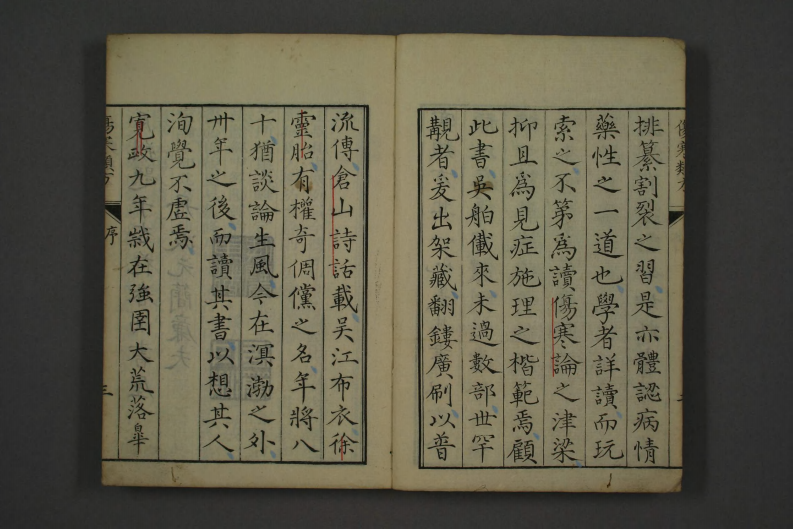 排纂割裂之習是亦體認病情
藥性之一道也學者詳讀而玩
索之不第爲讀傷寒論之津梁
抑且爲見症施理之楷範焉顧
此書吳舶儎來未過數部世罕
覯者爰出架藏翻鏤廣刷以普
流傳倉山詩話載吳江布衣徐
靈胎有權奇倜儻之名年將八
十猶談論生風今在溟渤之外
卅年之後而讀其書以想其人
洵覺不虛焉
寬政九年歲在強圉大荒落皋
序
三